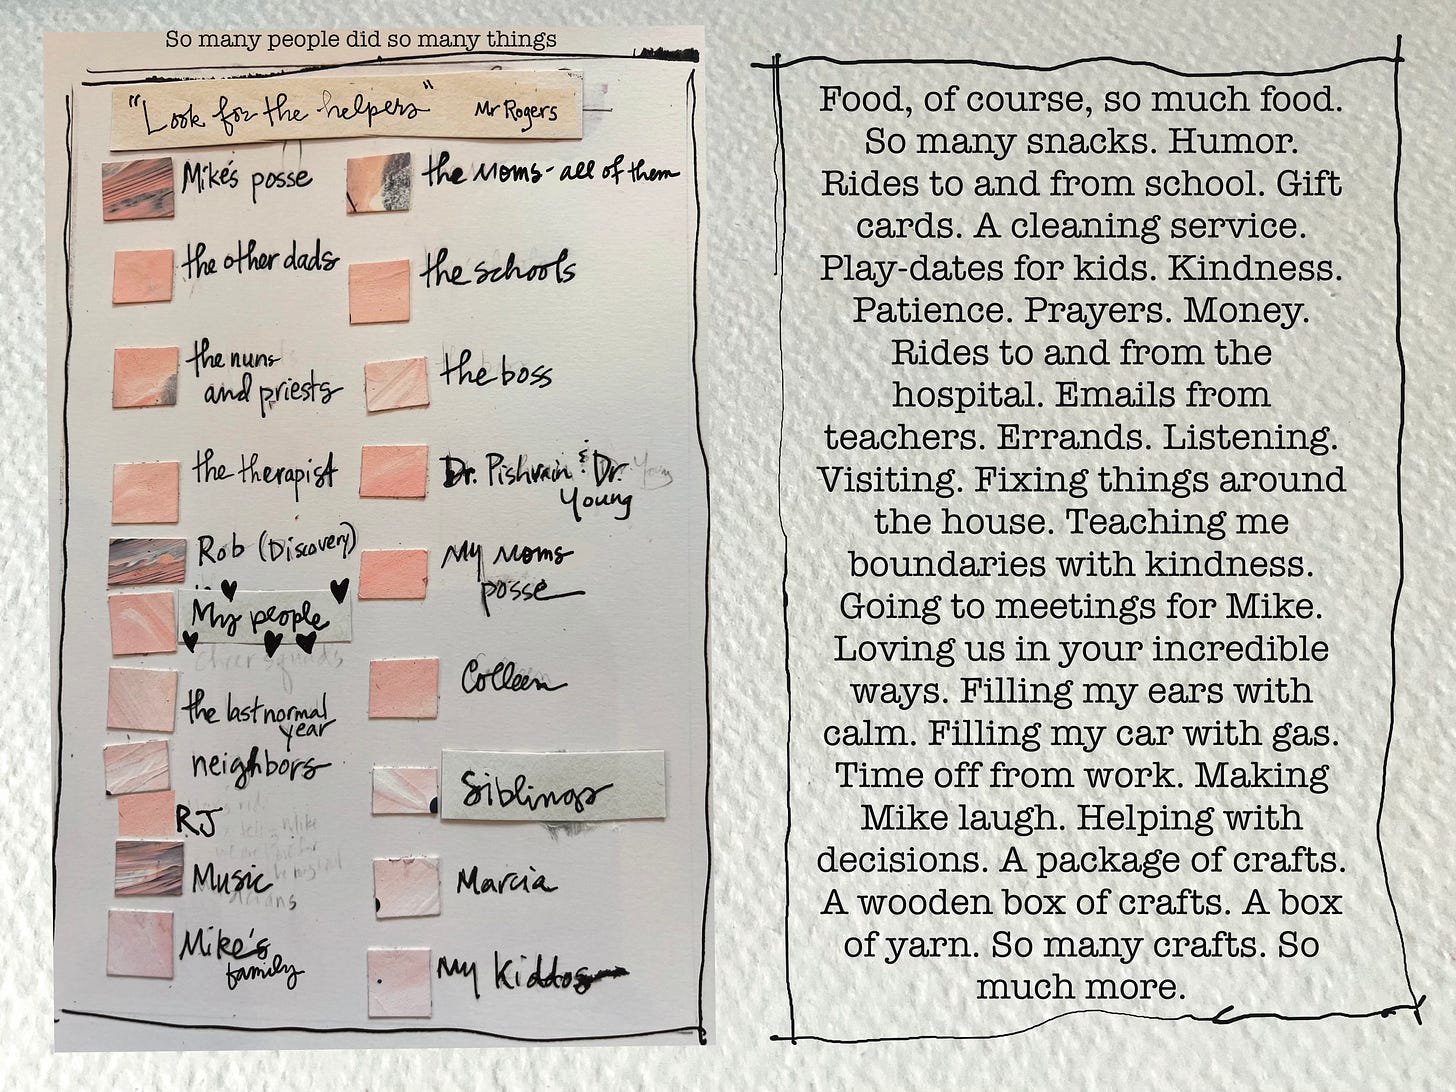 So many people did so many things
"Look for the helpers" Mr Rogers
Mike's posse
the other dads
the nuns
and priests
the therapist
Rob (Discovery)
My people
cheer squads
the last normal
year
neighbors
RJ
Music
Mike's
family
the Moms - all of them
the schools
the boss
Dr. Pishvain & Dr. Young
Young
My Moms
posse
Colleen
Siblings
Marcia
My Kiddos
Food, of course, so much food.
So many snacks. Humor.
Rides to and from school. Gift
cards. A cleaning service.
Play-dates for kids. Kindness.
Patience. Prayers. Money.
Rides to and from the
hospital. Emails from
teachers. Errands. Listening.
Visiting. Fixing things around
the house. Teaching me
boundaries with kindness.
Going to meetings for Mike.
Loving us in your incredible
ways. Filling my ears with
calm. Filling my car with gas.
Time off from work. Making
Mike laugh. Helping with
decisions. A package of crafts.
A wooden box of crafts. A box
of yarn. So many crafts. So
much more.